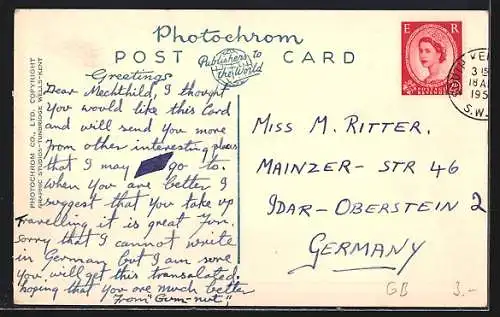 Photochrom
POST CARD
Publishers to
the World
PHOTOCHROM CO., LTD. COPYRIGHT
GRAPHIC STUDIOS-TUNBRIDGE WELLS-KENT
Greetings
Dear Mechthild, I thought
you would like this Card
and will send you more
from other interesting places
that I may go to.
When you are better I
suggest that you take up
travelling it is great fun.
sorry that I cannot write
in German but I am sure
you will get this translated.
hoping that you are much better
From "Gum-nut"
E R
3 15
18 A
195
S.W.
MISS M. RITTER.
MAINZER-STR 46
IDAR-OBERSTEIN 2
GERMANY
GB 3.-